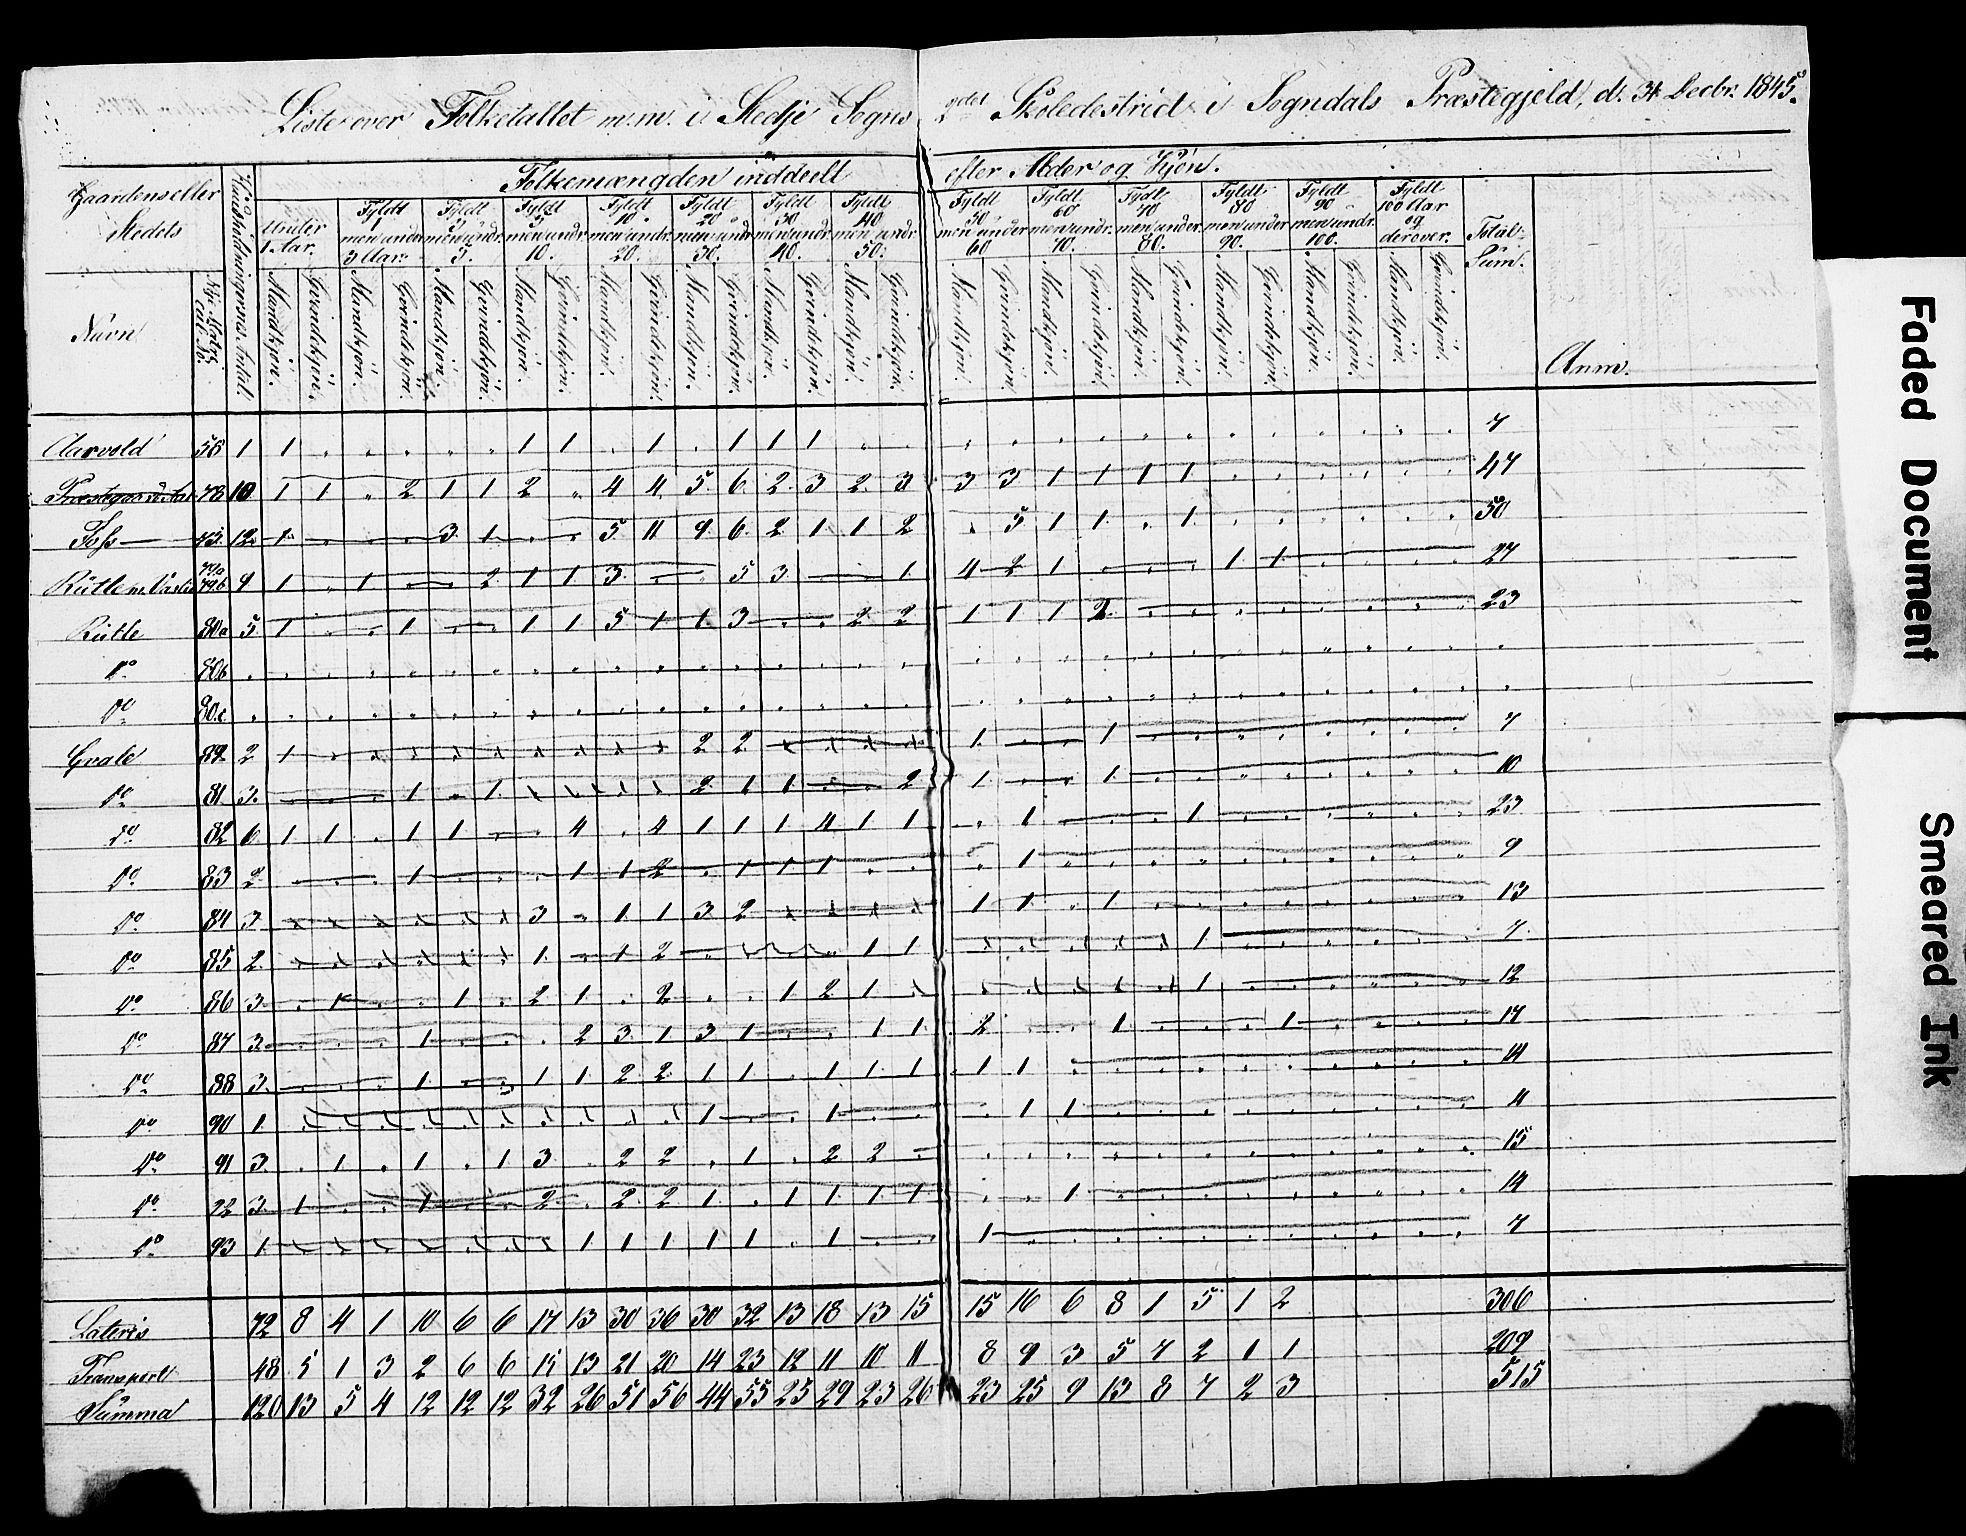 Liste over Folketallet m.m. i Stedje Sogns 2det Skoledestrict i Sogndals Præstegjeld, d. 31 Decbr. 1845.
Gaardens eller Stedets
Navn
Huusholdningernes Antal.
Folkemængden inddeelt efter Alder og Kjön.
Under 1 Aar.
Fyldt 1 men under 3 Aar.
Fyldt 3 men undr. 5.
Fyldt 5 men undr. 10.
Fyldt 10 men undr. 20.
Fyldt 20 men undr. 30.
Fyldt 30 men undr. 40.
Fyldt 40 men undr 50.
Fyldt 50 men under 60
Fyldt 60 men undr. 70.
Fyldt 70 men under 80.
Fyldt 80 men under 90.
Fyldt 90 men undr. 100.
Fyldt 100 Aar og derover.
Total Sum.
Anm.
Mandkjön. Qvindekjön. Mandkjön. Qvindekjön. Mandkjön. Qvindekjön. Mandkjön. Qvindekjön. Mandkjön. Qvindekjön. Mandkjön. Qvindekjön. Mandkjön. Qvindekjön. Mandkjön. Qvindekjön. Mandkjön. Qvindekjön. Mandkjön. Qvindekjön. Mandkjön. Qvindekjön. Mandkjön. Qvindekjön. Mandkjön. Qvindekjön. Mandkjön. Qvindekjön.
Aarvold 58 1 1 1 1 1 1 1 1 7
78 10 1 1 2 1 1 2 4 4 5 6 2 3 2 3 3 3 1 1 1 1 47
12 1 3 1 5 11 9 6 2 1 1 2 5 1 1 1 50
Rutle 79b 9 1 1 2 1 1 3 5 3 1 4 2 1 1 1 27
Rutle 80a 5 1 1 1 1 5 1 1 3 2 2 1 1 1 2 23
Do 80b
Do 80c
Qvale 89 2 1 2 2 1 1 7
Do 81 3 1 1 2 1 1 2 1 1 10
Do 82 6 1 1 1 1 4 4 1 1 1 4 1 1 1 1 23
Do 83 2 1 1 1 2 1 1 1 1 9
Do 84 3 3 1 1 3 2 1 1 1 13
Do 85 2 1 1 2 1 1 1 7
Do 86 3 1 1 2 1 2 1 2 1 1 12
Do 87 3 1 2 3 1 3 1 1 1 2 1 1 17
Do 88 3 1 1 1 2 2 1 1 1 1 1 1 1 14
Do 90 1 1 1 1 1 4
Do 91 3 1 1 1 3 2 2 1 2 2 15
Do 92 3 1 1 2 2 2 1 1 1 1 1 1 14
Do 93 1 1 1 1 1 1 1 1 7
Lateris 72 8 4 1 10 6 6 17 13 30 36 30 32 13 18 13 15 15 16 6 8 1 5 1 2 306
Transport 48 5 1 3 2 6 6 15 13 21 20 14 23 12 11 10 11 8 9 3 5 7 2 1 1 209
Summa 120 13 5 4 12 12 12 32 26 51 56 44 55 25 29 23 26 23 25 9 13 8 7 2 3 515
Faded Document
Smeared Ink